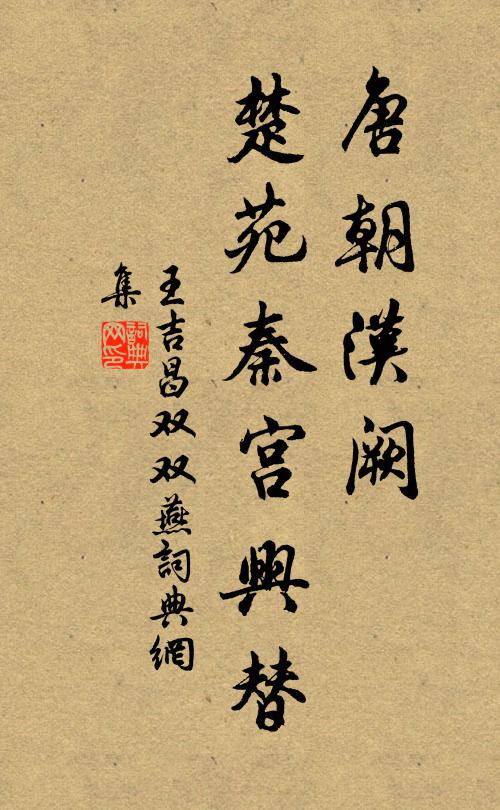 唐朝漢闕
楚苑秦宮興替
王吉昌双双燕詞典網
集
詞典
网印